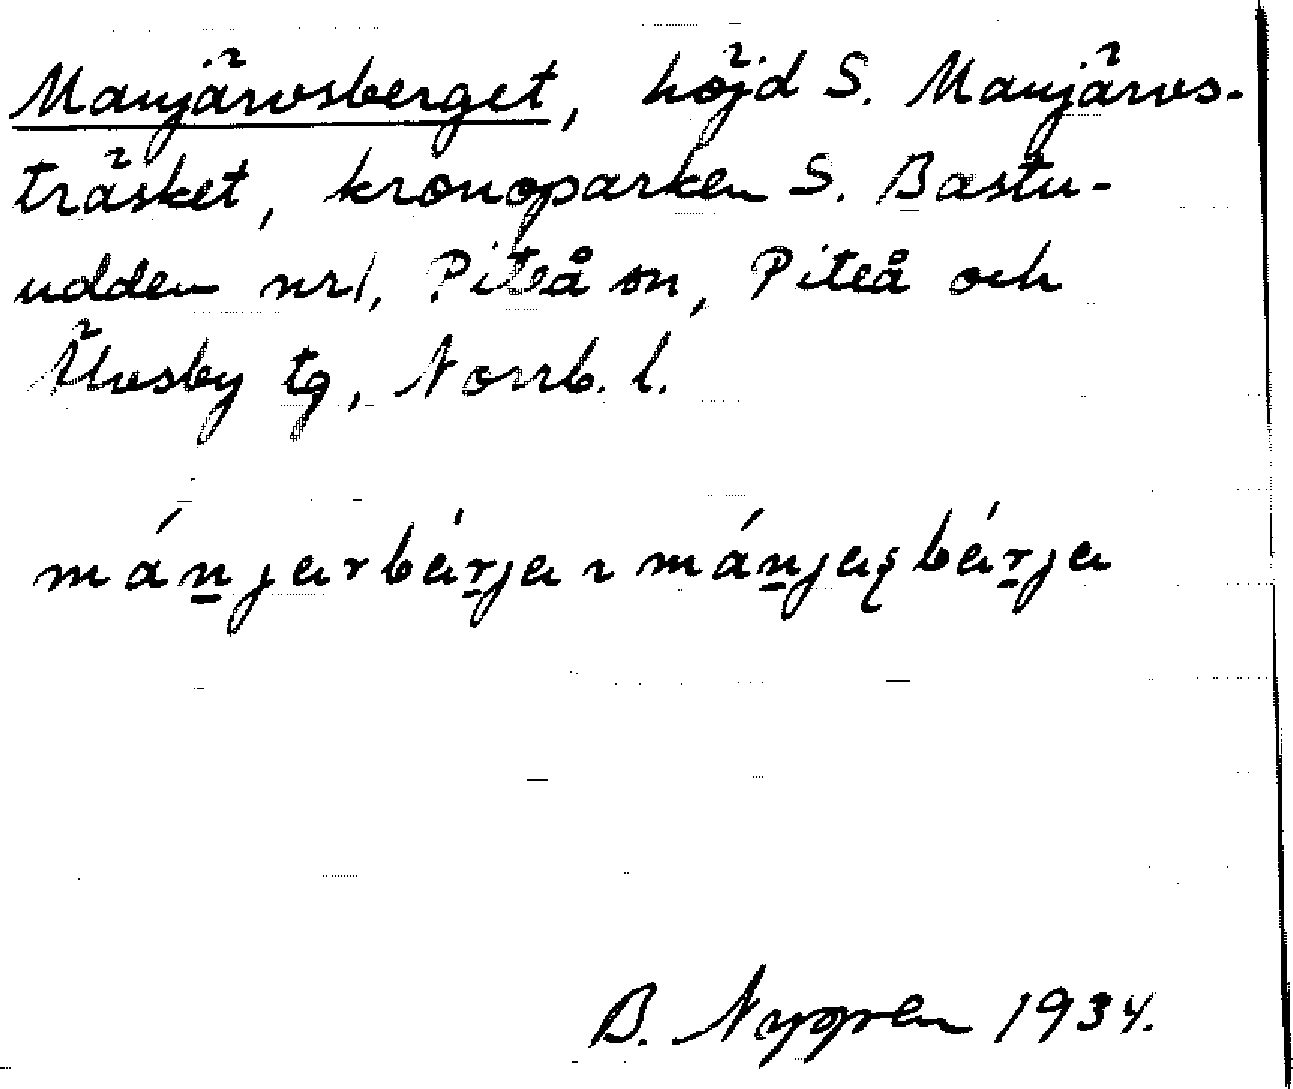 Manjärvsberget, höjd S. Manjärvs-
träsket, kronoparken S. Bastu-
udden nr 1, Piteå sn, Piteå och
Älvsby tg, Norrb. l.
mánjarbárja ~ mánjaʂbárja
B. Nygren 1934.